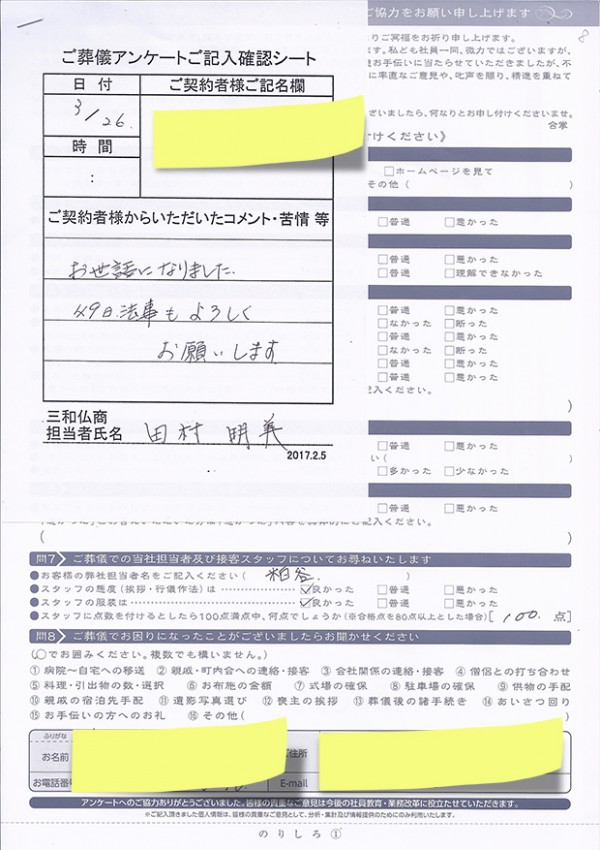 ご協力をお願い申し上げます
8
りご冥福をお祈り申し上げます。
す。私ども社員一同、微力ではございますが、
お手伝いに当たらせていただきましたが、不
に率直なご意見や、叱声を賜り、精進を重ねて
ざいましたら、何なりとお申し付けくださいませ。
合掌
けください》
ご葬儀アンケートご記入確認シート
日付
ご契約者様ご記名欄
3/26.
時間
:
ご契約者様からいただいたコメント・苦情 等
お世話になりました.
49日.法事も よろしく
お願いします
三和仏商
担当者氏名 田村 明美
2017.2.5
□ホームページを見て
その他( )
□普通 □悪かった
□普通 □悪かった
□普通 □理解できなかった
□普通 □悪かった
□なかった □断った
□普通 □悪かった
□なかった □断った
□普通 □悪かった
□普通 □悪かった
記入ください。
)
□普通 □悪かった
い( )
□多かった □少なかった
□普通 □悪かった
( )
問7 ご葬儀での当社担当者及び接客スタッフについてお尋ねいたします
●お客様の弊社担当者名をご記入ください( 粕谷. )
●スタッフの態度(挨拶・行儀作法)は ☑良かった □普通 □悪かった
●スタッフの服装は ☑良かった □普通 □悪かった
●スタッフに点数を付けるとしたら100点満点中、何点でしょうか(※合格点を80点以上とした場合)[ 100. 点]
問8 ご葬儀でお困りになったことがございましたらお聞かせください
(○でお囲みください。複数でも構いません。)
①病院〜自宅への移送 ②親戚・町内会への連絡・接客 ③会社関係の連絡・接客 ④僧侶との打ち合わせ
⑤料理・引出物の数・選択 ⑥お布施の金額 ⑦式場の確保 ⑧駐車場の確保 ⑨供物の手配
⑩親戚の宿泊先手配 ⑪遺影写真選び ⑫喪主の挨拶 ⑬葬儀後の諸手続き ⑭あいさつ回り
⑮お手伝いの方へのお礼 ⑯その他( )
ふりがな
お名前
ご住所
お電話番号
E-mail
アンケートへのご協力ありがとうございました。皆様の貴重なご意見は今後の社員教育・業務改革に役立たせていただきます。
※ご記入頂きました個人情報は、皆様の貴重なご意見として、分析・集計及び情報提供のためにのみ利用いたします。
のりしろ①